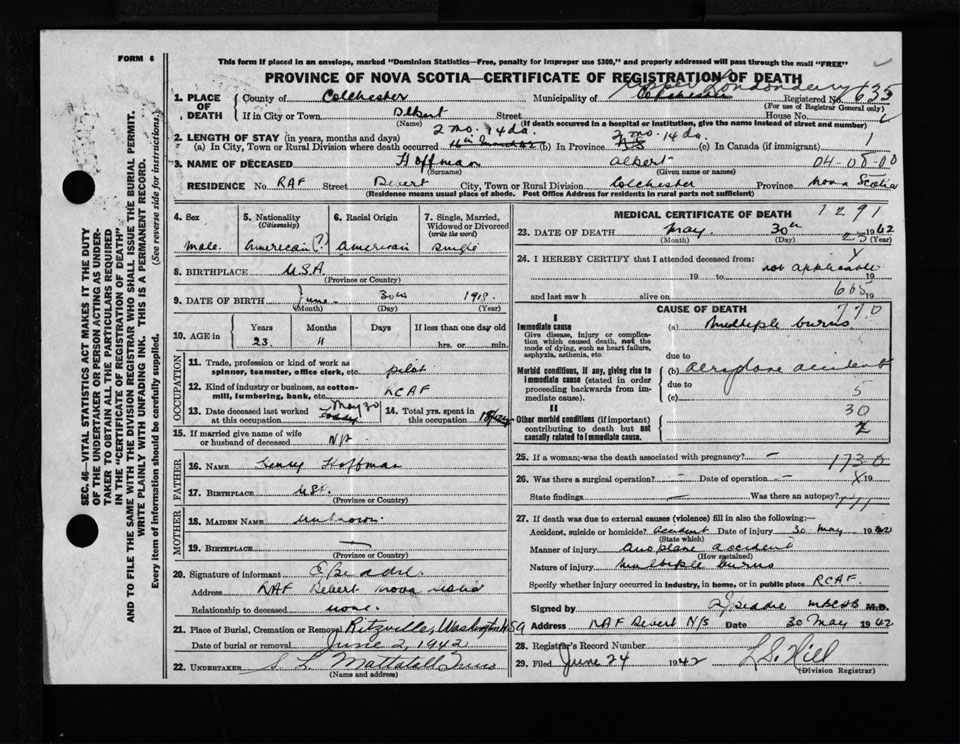 FORM 6
This form if placed in an envelope, marked "Dominion Statistics—Free, penalty for improper use $300," and properly addressed will pass through the mail "FREE"
PROVINCE OF NOVA SCOTIA—CERTIFICATE OF REGISTRATION OF DEATH
1. PLACE OF DEATH County of Colchester Municipality of Colchester Registered No. 635
Londonderry
(For use of Registrar General only)
If in City or Town Debert Street House No.
(Name) (If death occurred in a hospital or institution, give the name instead of street and number)
2. LENGTH OF STAY (in years, months and days) 2 mo. 14 da. 2 mo. 14 da. 1
(a) In City, Town or Rural Division where death occurred (b) In Province (c) In Canada (if immigrant)
3. NAME OF DECEASED Hoffman Albert 04-00-00
(Surname) (Given name or names)
RESIDENCE No. RAF Street Debert City, Town or Rural Division Colchester Province Nova Scotia
(Residence means usual place of abode. Post Office Address for residents in rural parts not sufficient)
4. Sex
male.
5. Nationality
(Citizenship)
American (?)
6. Racial Origin
American
7. Single, Married, Widowed or Divorced
(write the word)
single
8. BIRTHPLACE U.S.A
(Province or Country)
9. DATE OF BIRTH June 30th 1918.
(Month) (Day) (Year)
10. AGE in Years Months Days If less than one day old
23 11 hrs. or min.
OCCUPATION
11. Trade, profession or kind of work as spinner, teamster, office clerk, etc. pilot
12. Kind of industry or business, as cotton-mill, lumbering, bank, etc. RCAF
13. Date deceased last worked at this occupation May 30
14. Total yrs. spent in this occupation
15. If married give name of wife or husband of deceased N/A
FATHER
16. NAME Henry Hoffman
17. BIRTHPLACE US.
(Province or Country)
MOTHER
18. MAIDEN NAME unknown
19. BIRTHPLACE —
(Province or Country)
20. Signature of informant
Address RAF Debert nova scotia
Relationship to deceased none.
21. Place of Burial, Cremation or Removal Ritzville, Washington USA
Date of burial or removal June 2, 1942
22. UNDERTAKER
(Name and address)
MEDICAL CERTIFICATE OF DEATH
1291
23. DATE OF DEATH May 30th 1942
(Month) (Day) (Year)
25
24. I HEREBY CERTIFY that I attended deceased from:
19 to not applicable 19
and last saw h alive on 665 19
CAUSE OF DEATH 770
I
Immediate cause
Give disease, injury or complication which caused death, not the mode of dying, such as heart failure, asphyxia, asthenia, etc.
(a) Multiple burns
due to
Morbid conditions, if any, giving rise to immediate cause (stated in order proceeding backwards from immediate cause).
(b) Aeroplane accident
due to
(c) 5
II
Other morbid conditions (if important) contributing to death but not causally related to immediate cause.
30
2
25. If a woman, was the death associated with pregnancy? —
1730
26. Was there a surgical operation? — Date of operation — 19
State findings — Was there an autopsy?
27. If death was due to external causes (violence) fill in also the following:—
Accident, suicide or homicide? accident Date of injury 30 May 1942
(State which)
Manner of injury aeroplane accident
(How sustained)
Nature of injury multiple burns
Specify whether injury occurred in industry, in home, or in public place RCAF.
Signed by M.D.
Address RAF Debert N/S Date 30 May 1942
28. Registrar's Record Number
29. Filed June 24 1942 L.S. Hill
(Division Registrar)
SEC. 46—VITAL STATISTICS ACT MAKES IT THE DUTY OF THE UNDERTAKER OR PERSON ACTING AS UNDERTAKER TO OBTAIN ALL THE PARTICULARS REQUIRED IN THE "CERTIFICATE OF REGISTRATION OF DEATH"
AND TO FILE THE SAME WITH THE DIVISION REGISTRAR WHO SHALL ISSUE THE BURIAL PERMIT.
WRITE PLAINLY WITH UNFADING INK. THIS IS A PERMANENT RECORD.
Every item of information should be carefully supplied. (See reverse side for instructions.)